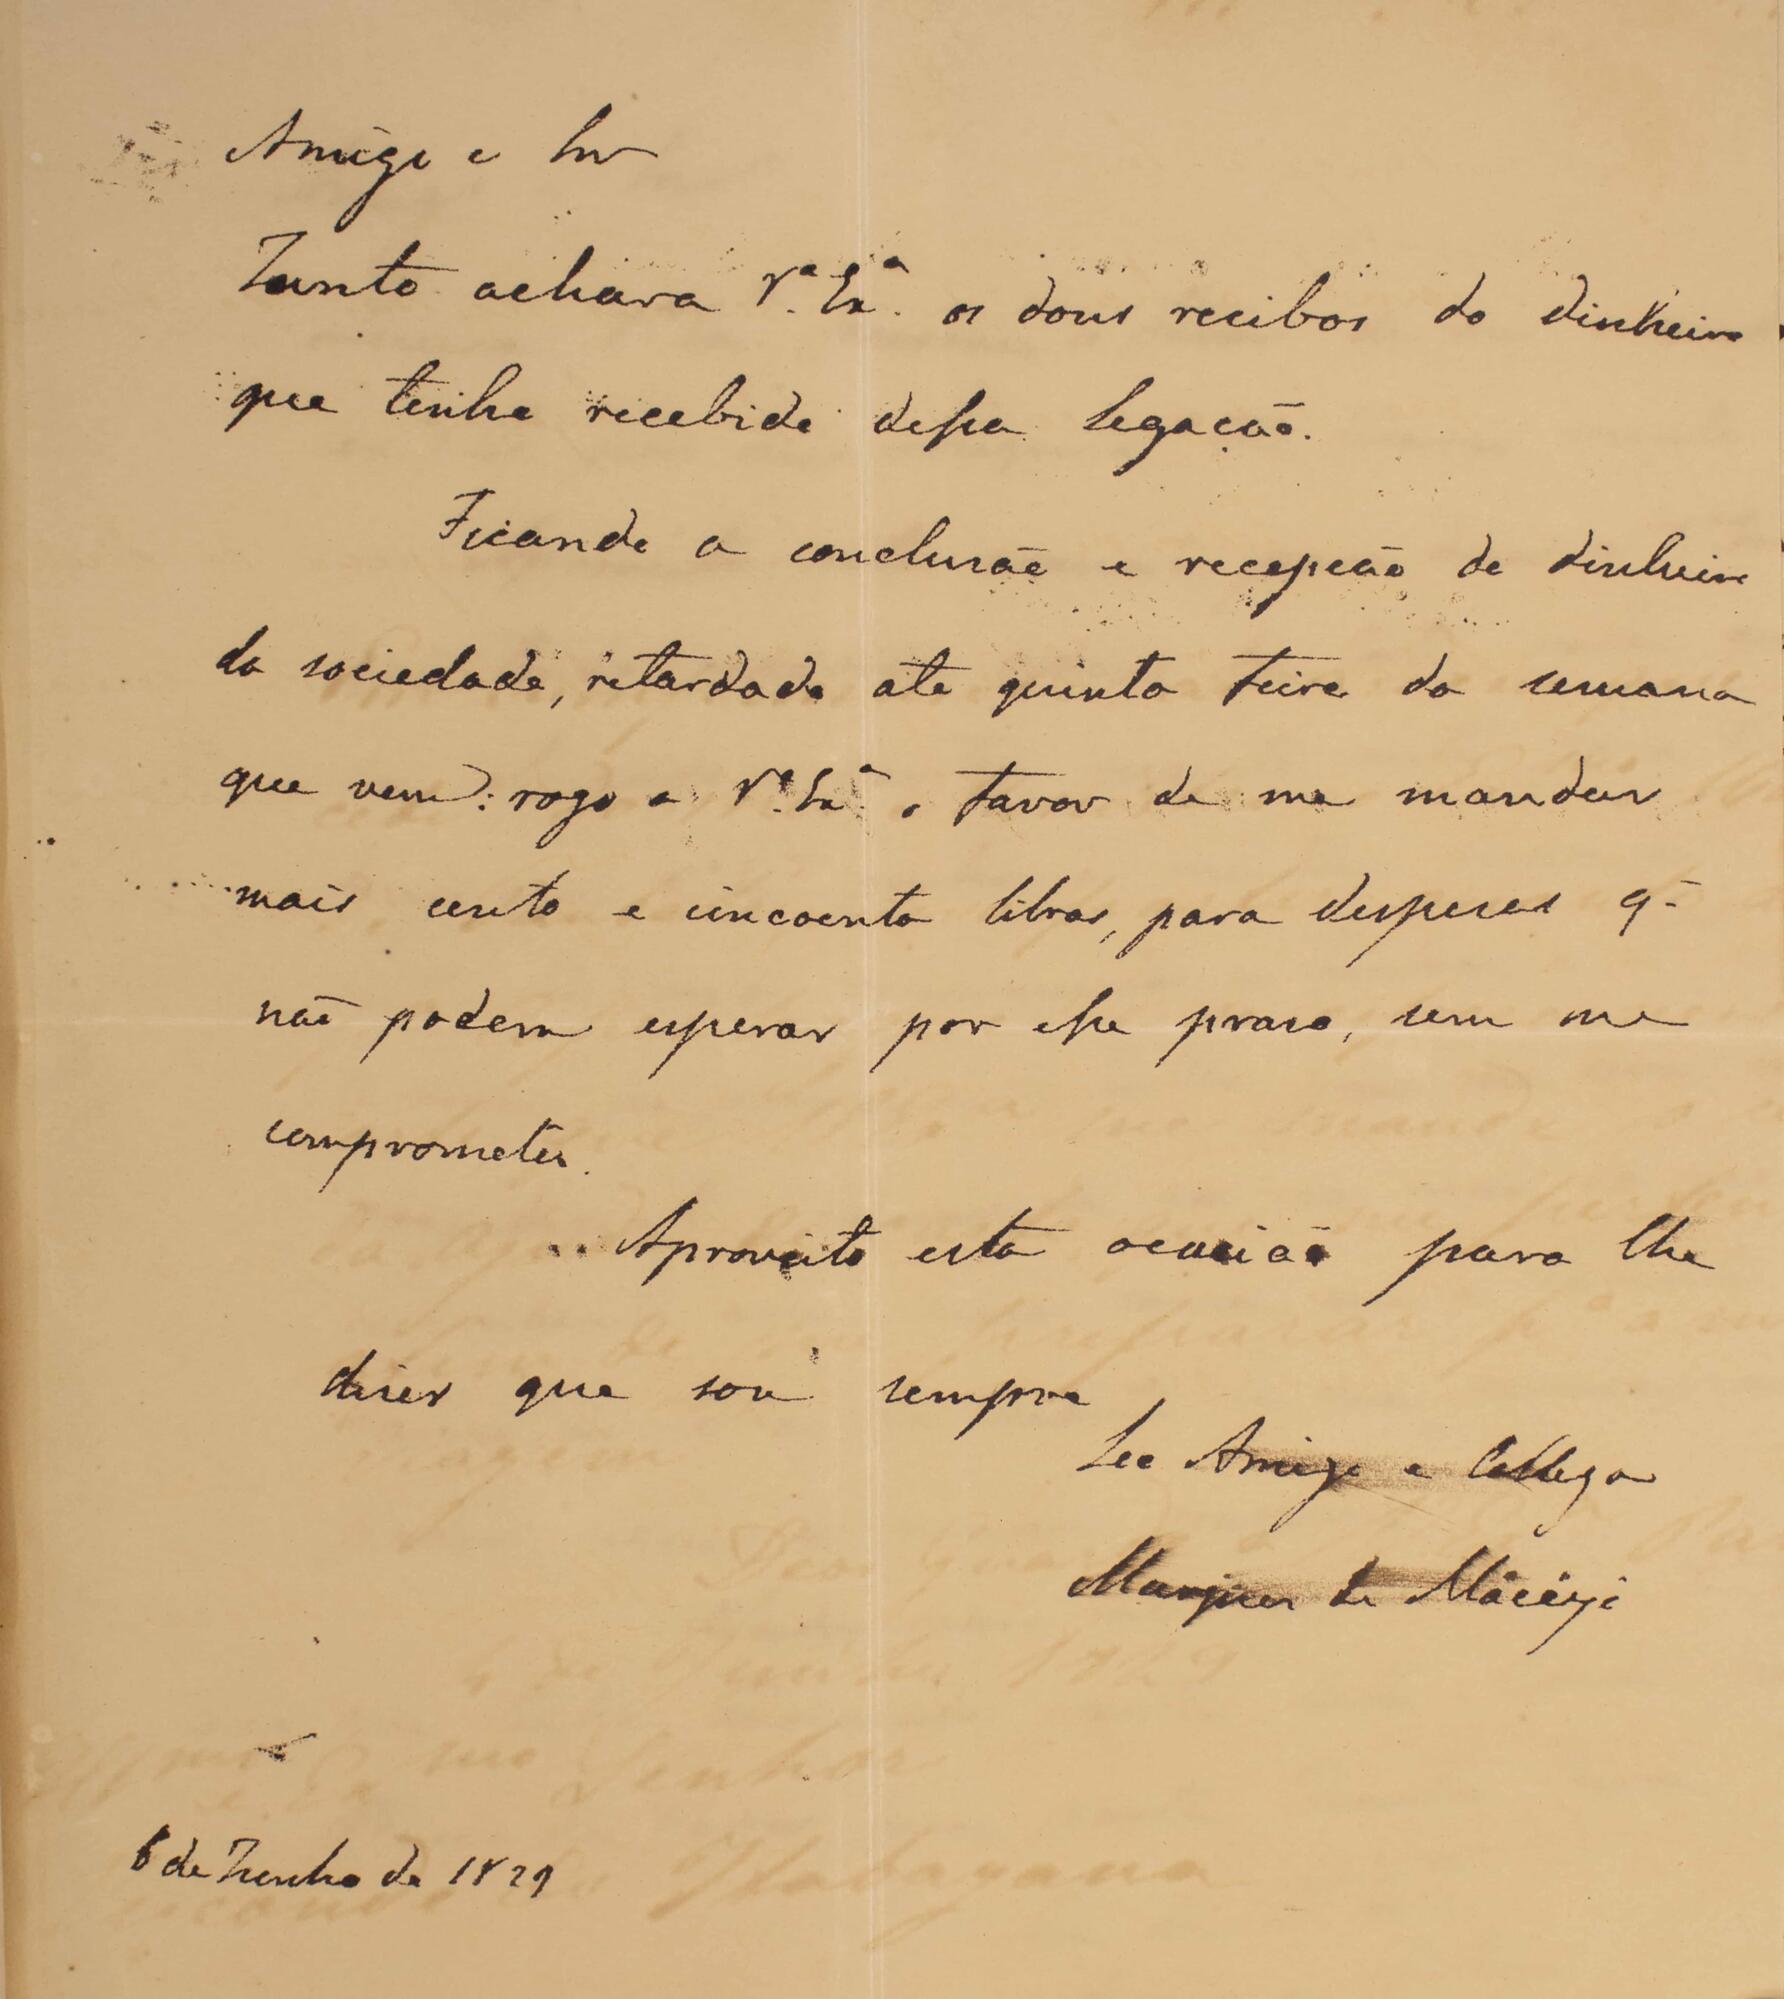 Amigo e Snr
Junto achara V.ª Ex.ª os dous recibos do dinheiro
que tenho recebido dessa Legação.
Ficando a conclusão e recepção do dinheiro
da sociedade, retardada ate quinta feira da semana
que vem: rogo a V.ª Ex.ª o favor de me mandar
mais cento e cincoenta libras, para despesas q̃
não podem esperar por esse praso, sem me
comprometer.
Aproveito esta ocasião para lhe
diser que sou sempre
Seo Amigo e Collega
Marques de Maceyó
6 de Junho de 1829